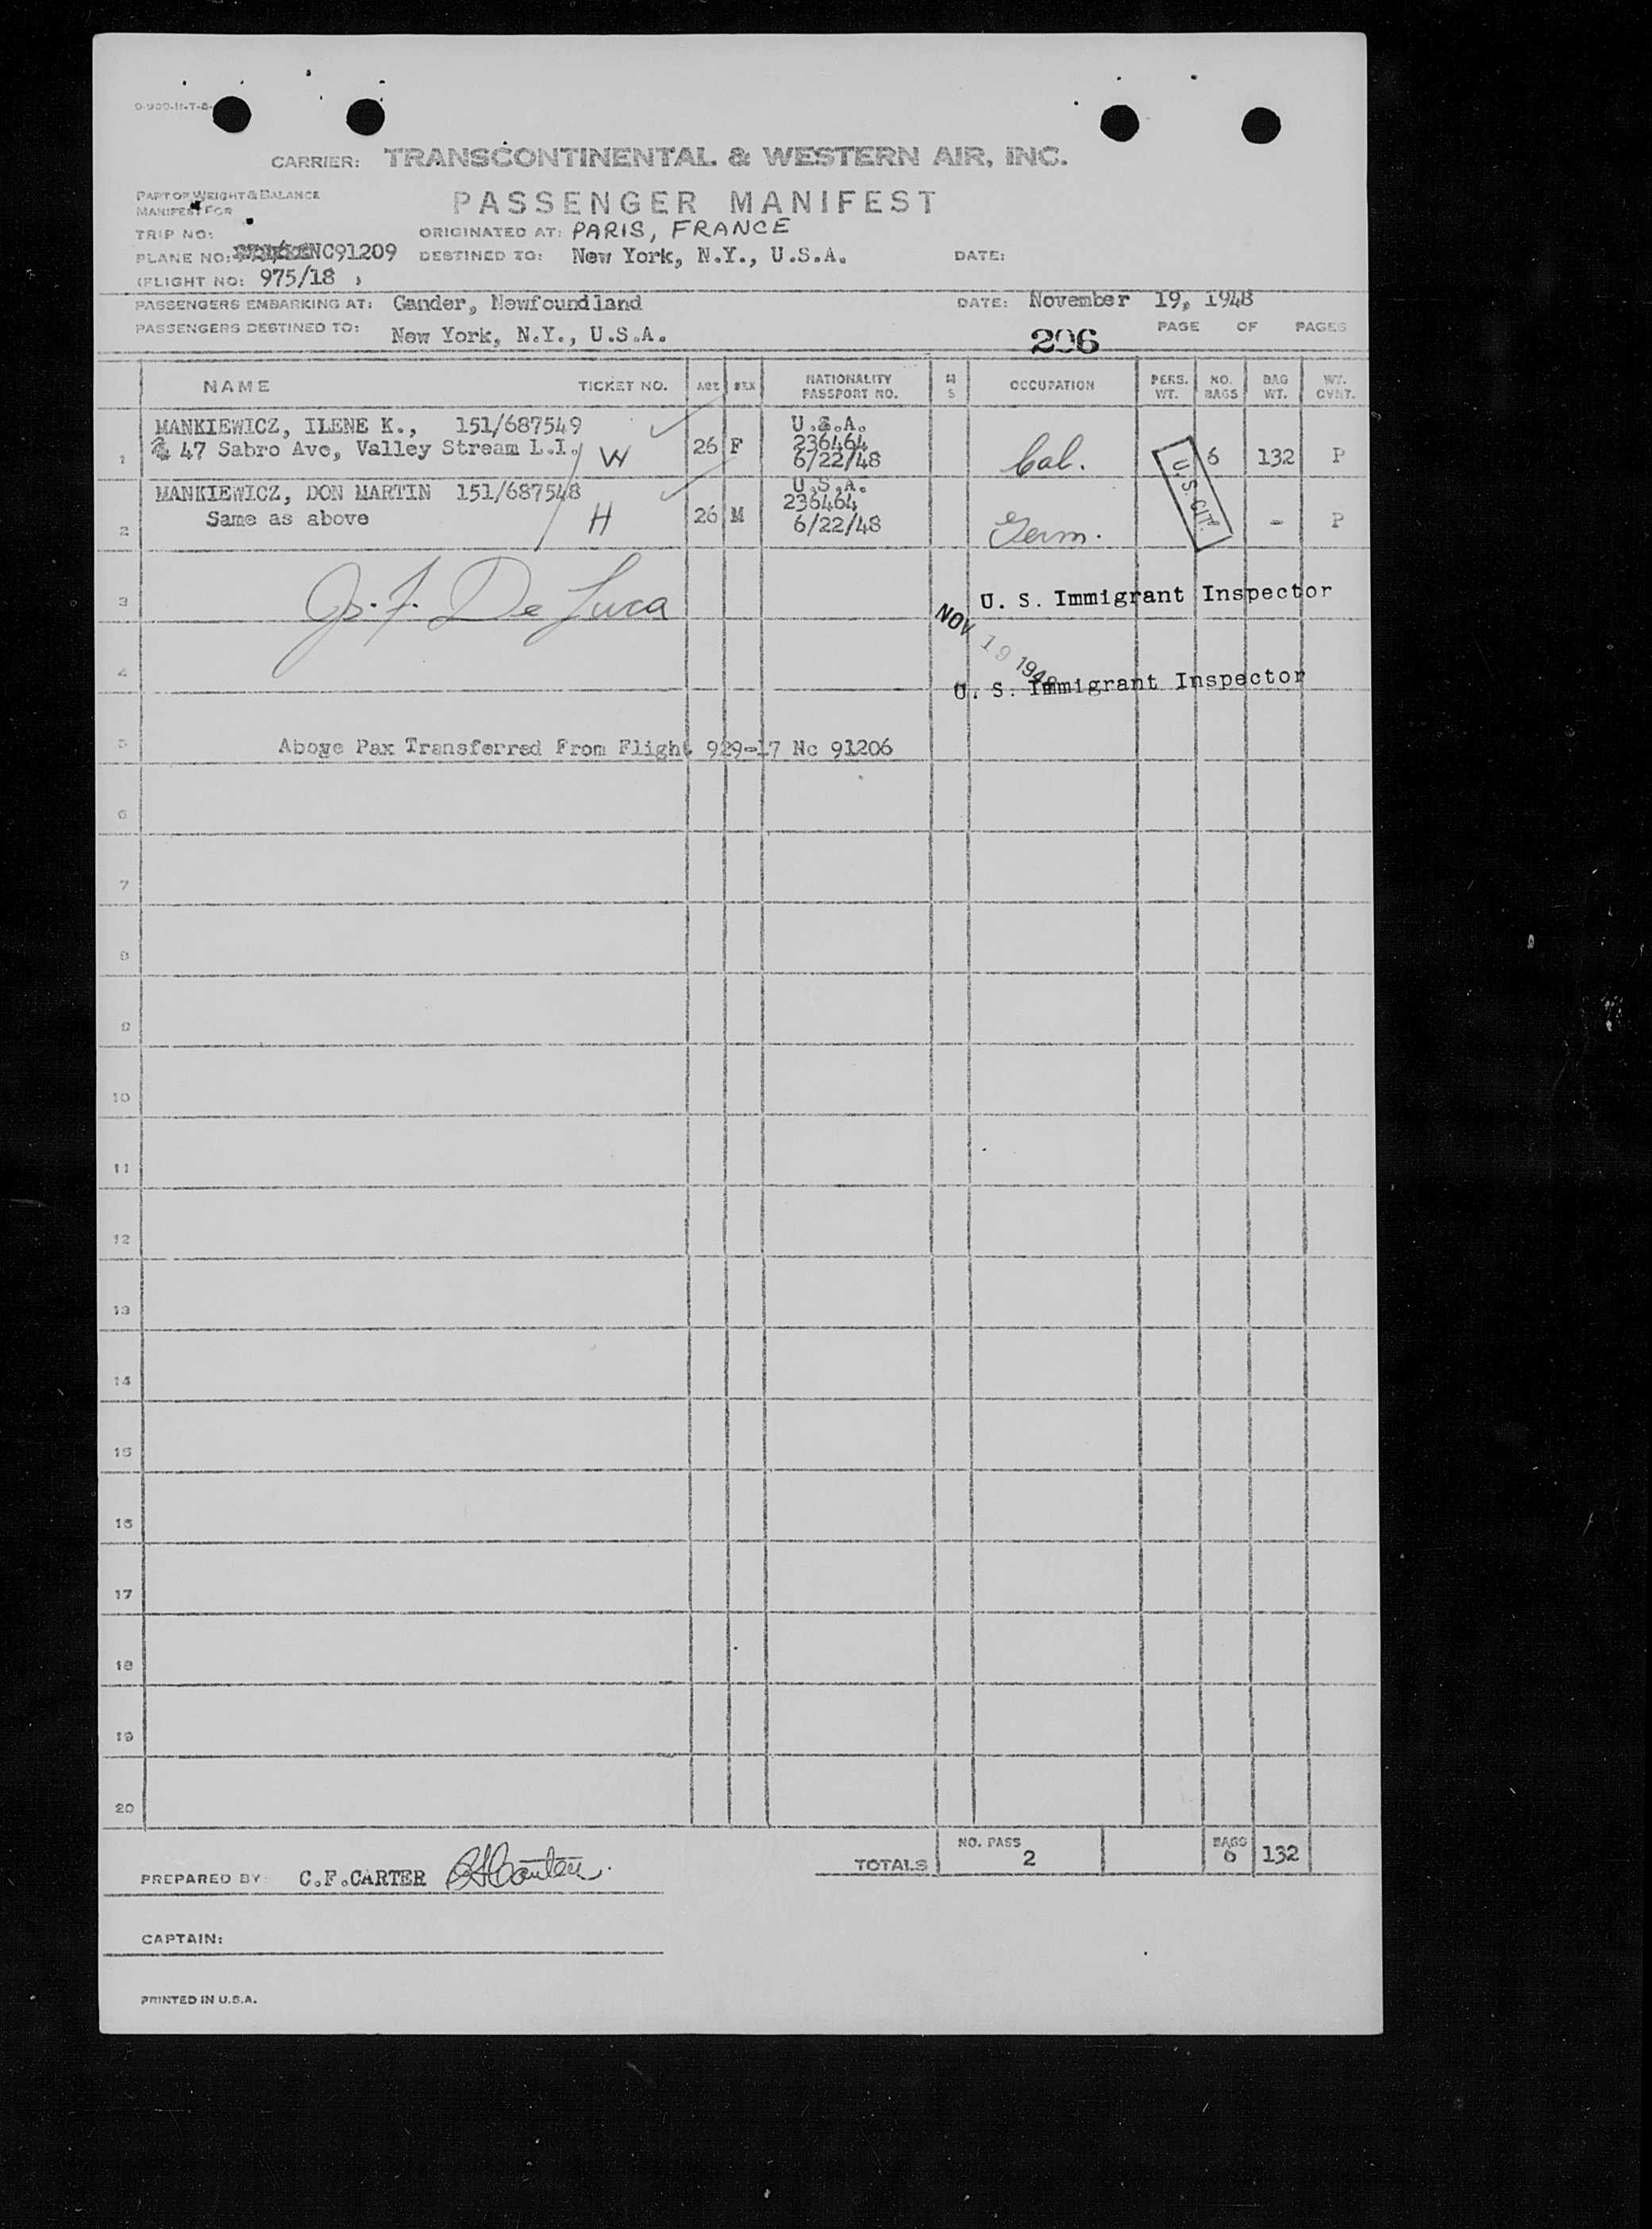 CARRIER: TRANSCONTINENTAL & WESTERN AIR, INC.
PART OF WEIGHT & BALANCE
MANIFEST FOR
PASSENGER MANIFEST
TRIP NO:
ORIGINATED AT: PARIS, FRANCE
PLANE NO: NC91209 DESTINED TO: New York, N.Y., U.S.A. DATE:
(FLIGHT NO: 975/18 )
PASSENGERS EMBARKING AT: Gander, Newfoundland DATE: November 19, 1948
PASSENGERS DESTINED TO: New York, N.Y., U.S.A. 206 PAGE OF PAGES
NAME TICKET NO. AGE SEX NATIONALITY PASSPORT NO. M S OCCUPATION PERS. WT. NO. BAGS BAG WT. WT. CVNT.
MANKIEWICZ, ILENE K., 151/687549 U.S.A.
1 47 Sabro Ave, Valley Stream L.I. W 26 F 236464 Cal. 6 132 P
6/22/48
U.S. CIT.
MANKIEWICZ, DON MARTIN 151/687548 U.S.A.
236464
2 Same as above H 26 M 6/22/48 Germ. - P
3 Js. F. De Luca U. S. Immigrant Inspector
NOV 19 1948
4 U. S. Immigrant Inspector
5 Above Pax Transferred From Flight 929-17 Nc 91206
6
7
8
9
10
11
12
13
14
15
16
17
18
19
20
TOTALS NO. PASS 2 BAGS 6 132
PREPARED BY: C.F.CARTER CFCarter.
CAPTAIN:
PRINTED IN U.S.A.